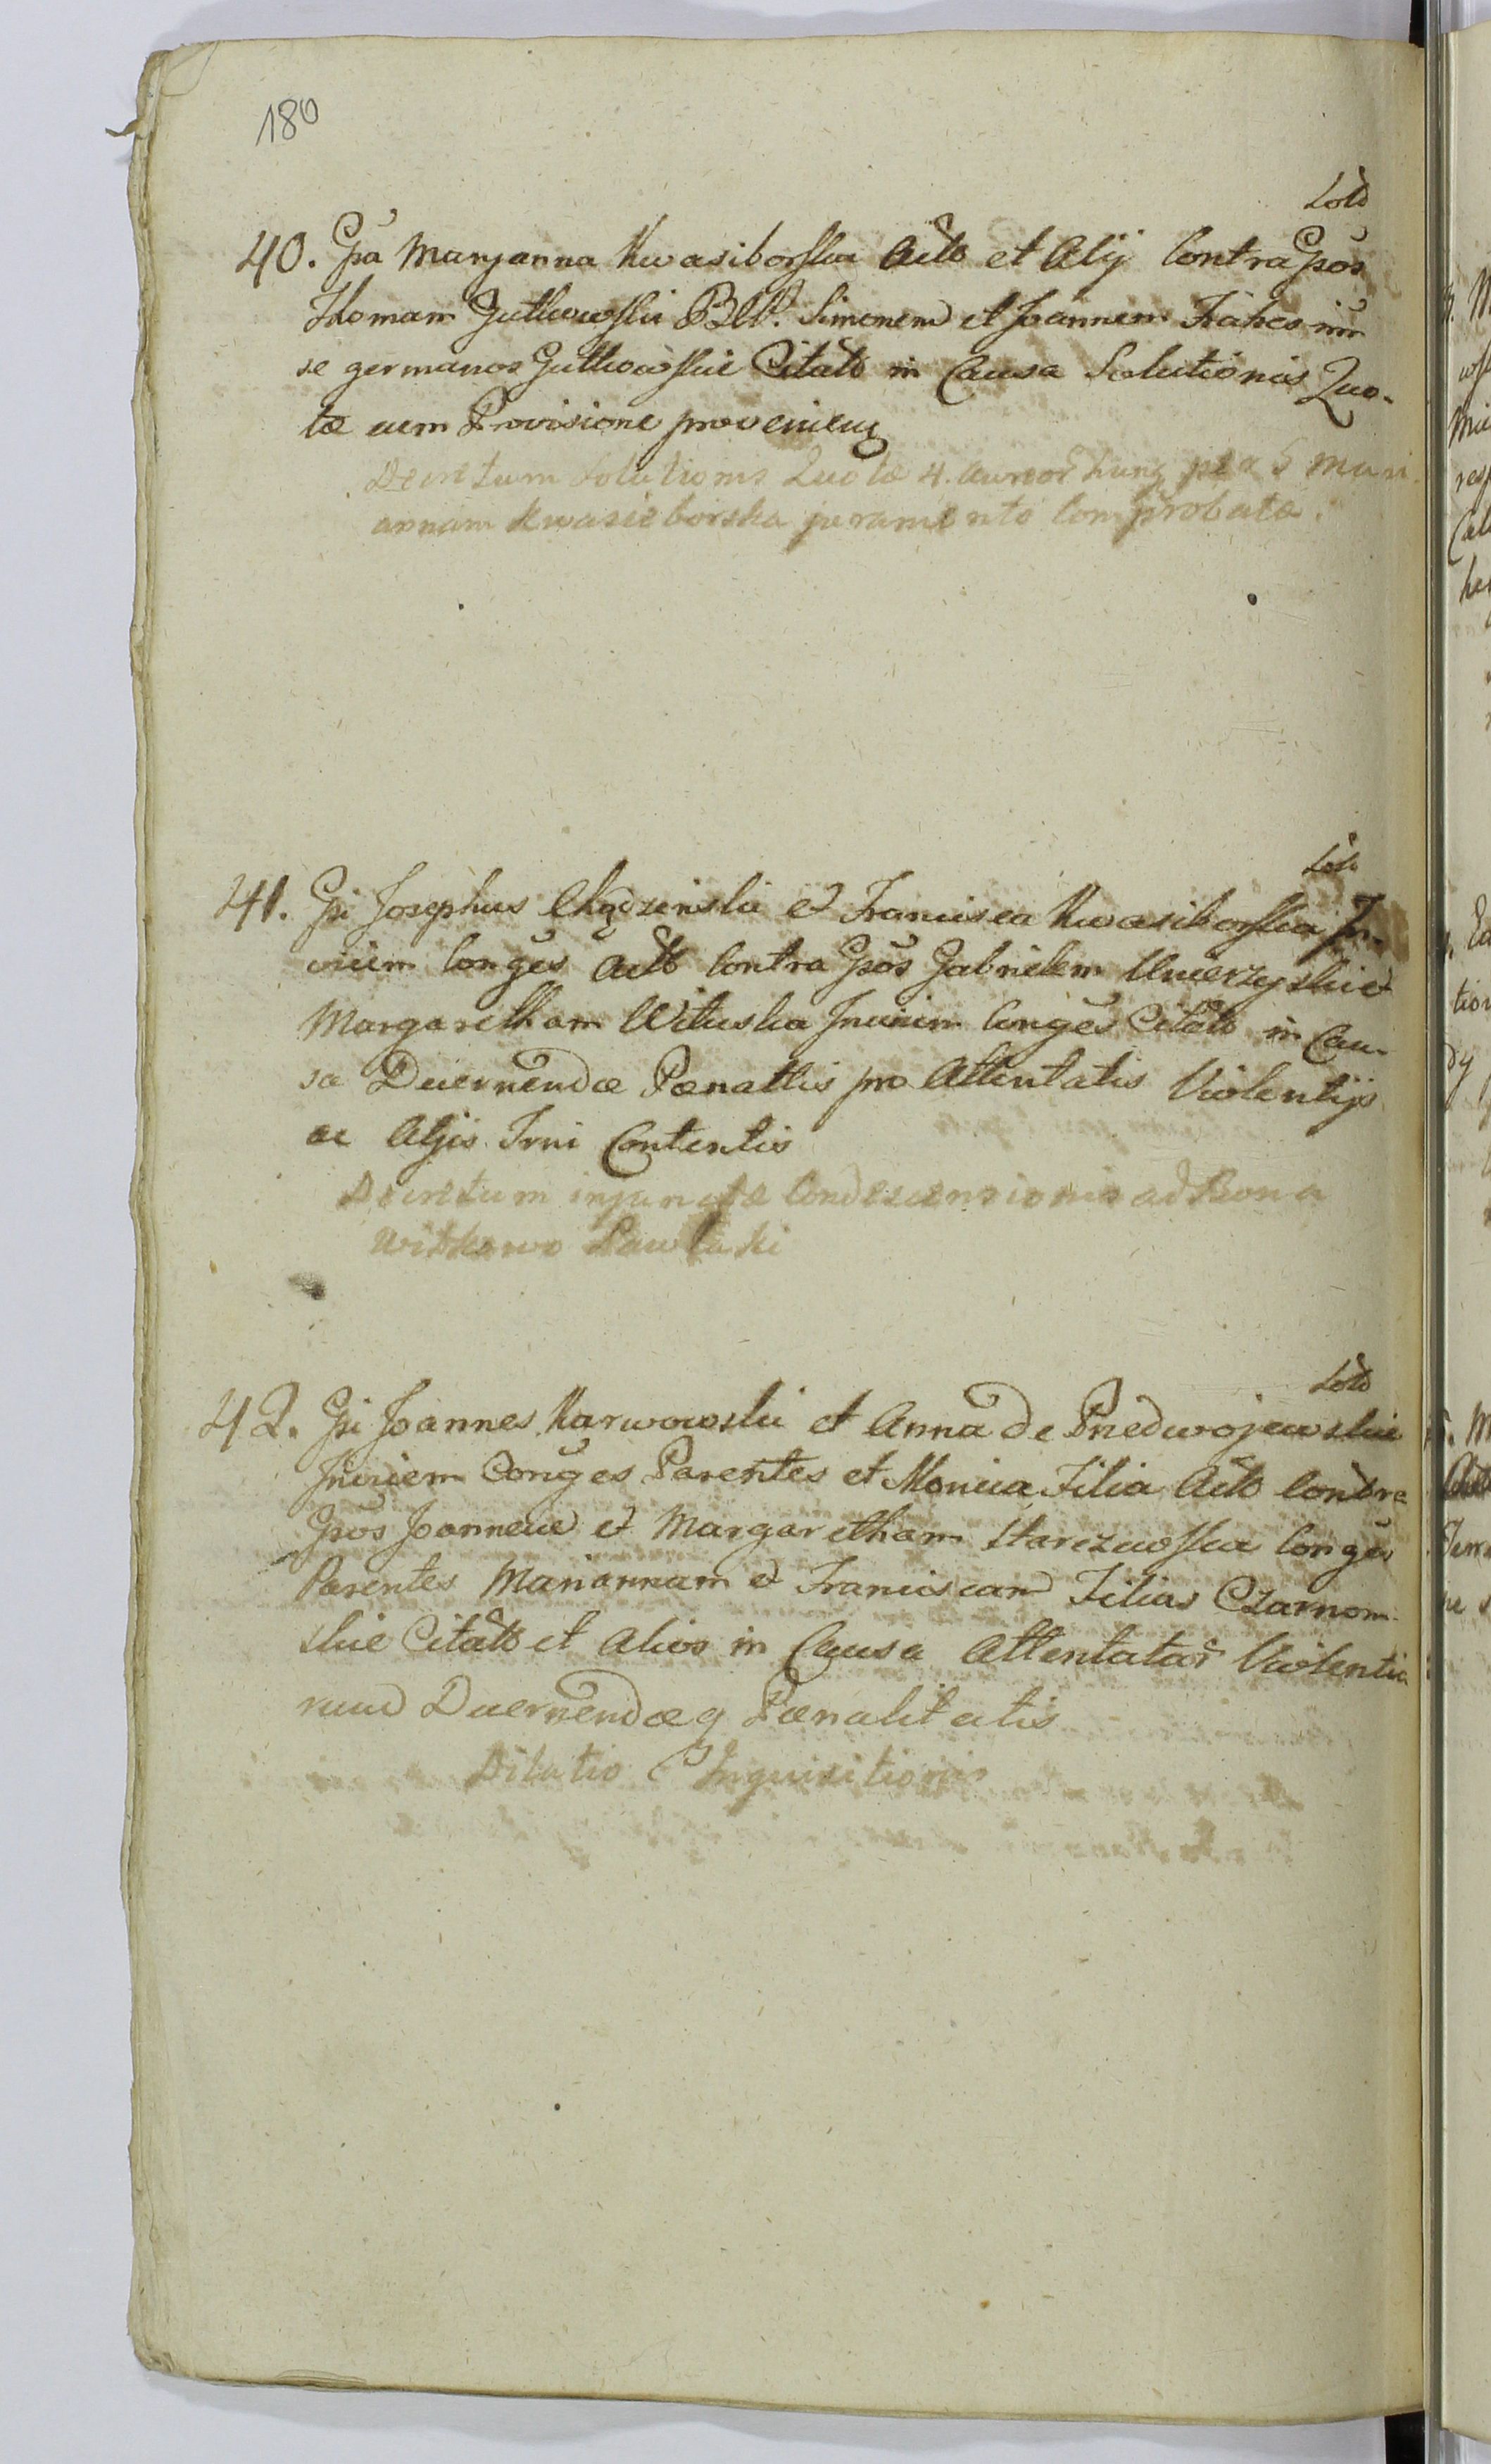 180
40. Gsa Maryanna Kwasiborska Actb et Alij Contra Gsos
Thomam Gutkowski Simonem et Joannem Fratres inter
se germanos Gutkowskie Citatb in Causa Solutionis Quo-
tæ cum Provisione proveniens
Decretum Solutionis Quotæ 4. Aureor hung per G Mari
annam Kwasieborska juramento Comprobatæ.
41. Gsi Josephus Chądzinski et Francisca Kwasiborska In-
vicem Conges Actb Contra Gsos Gabrielem Umerzyski et
Margaretham Wituska Invicem Conges Citatb in Cau-
sa Decernendæ Pœnattis pro Attentatis Violentijs
ac Alijs Inni Contentis
Decretum injunctæ Condescensionis ad Bona
Witkowo Pawlaki
42. Gsi Joannes Karwowski et Anna de Przedwojewskie
Invicem Conges Parentes et Monica Filia Actb Contra
Gsos Joannem et Margaretham Starczewska Conges
Parentes Mariannam et Franciscam Filias Czarnom-
skie Citatb et Alios in Causa Attentatar Violentia
rum Decernendæq Pœnalitatis
Dilatio Inquisitionis